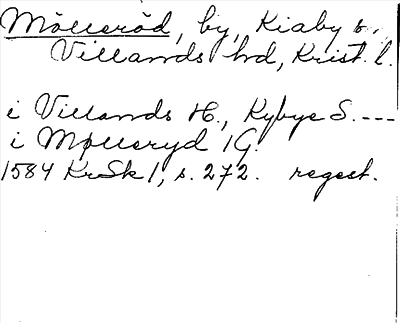 Mölleröd, by, Kiaby s.,
Villands hd, Krist. l.
i Villands H., Kybye S. ---
i Mølleryd 1G.
1584 KrSk 1, s. 272. regest.